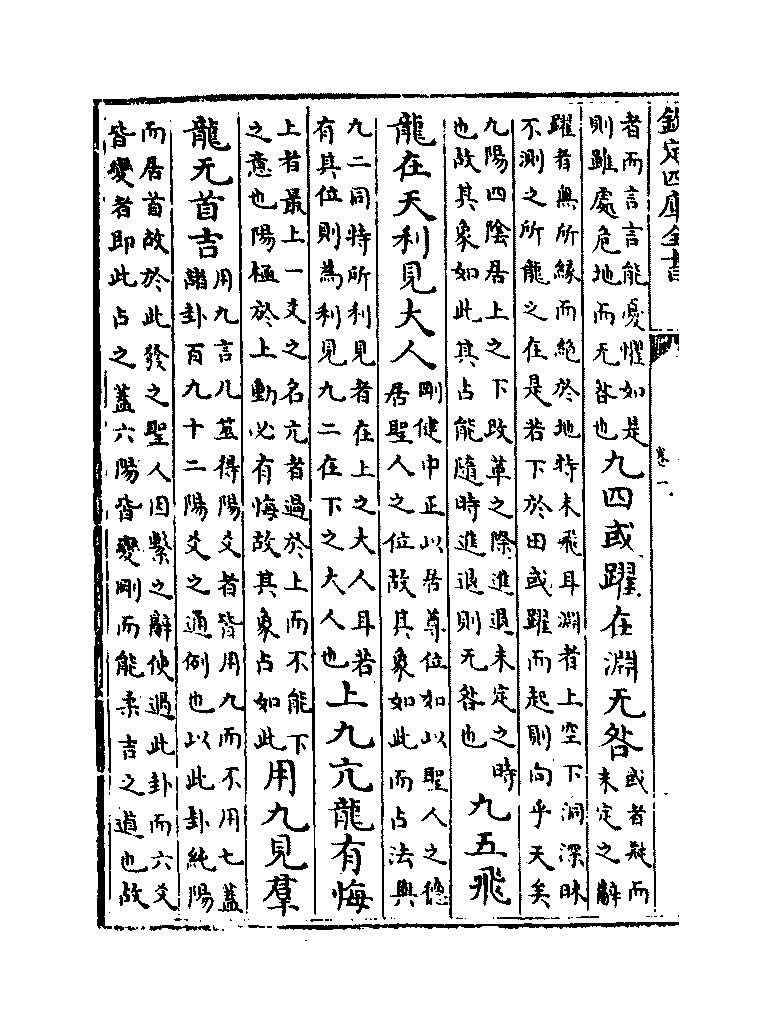 欽定四庫全書
卷一
者而言言能憂懼如是
則雖處危地而无咎也
九四或躍在淵无咎
或者疑而
未定之辭
躍者無所緣而絶於地特未飛耳淵者上空下洞深昧
不測之所龍之在是若下於田或躍而起則向乎天矣
九陽四陰居上之下改革之際進退未定之時
也故其象如此其占能隨時進退則无咎也
九五飛
龍在天利見大人
剛健中正以居尊位如以聖人之德
居聖人之位故其象如此而占法與
九二同特所利見者在上之大人耳若
有其位則為利見九二在下之大人也
上九亢龍有悔
上者最上一爻之名亢者過於上而不能下
之意也陽極於上動必有悔故其象占如此
用九見羣
龍无首吉
用九言凡筮得陽爻者皆用九而不用七蓋
諸卦百九十二陽爻之通例也以此卦純陽
而居首故於此發之聖人因繫之辭使遇此卦而六爻
皆變者即此占之蓋六陽皆變剛而能柔吉之道也故